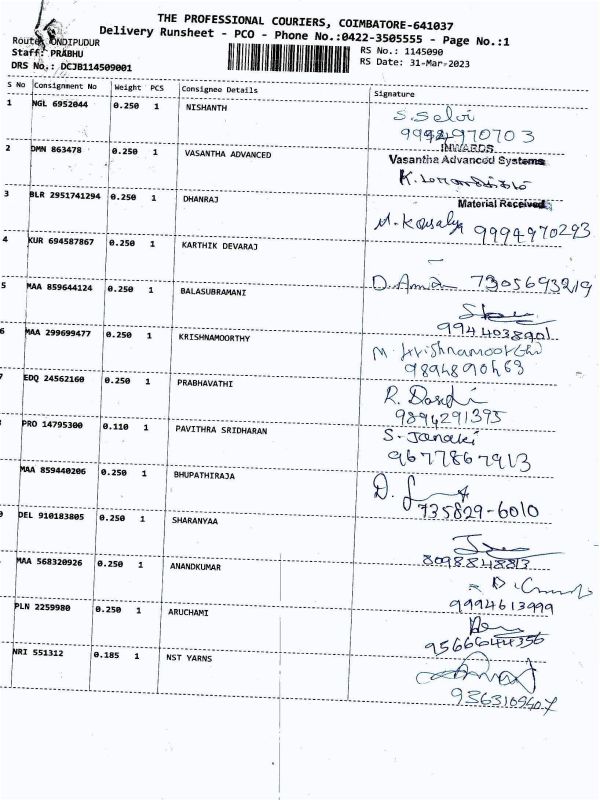 THE PROFESSIONAL COURIERS, COIMBATORE-641037
Delivery Runsheet - PCO - Phone No.:0422-3505555 - Page No.:1
Route: ONDIPUDUR
Staff: PRABHU
DRS No.: DCJB114509001
RS No.: 1145090
RS Date: 31-Mar-2023
S No Consignment No Weight PCS Consignee Details Signature
1 NGL 6952044 0.250 1 NISHANTH S. Selvi
9994970703
INWARDS
2 DMN 863478 0.250 1 VASANTHA ADVANCED Vasantha Advanced Systems
Material Received
3 BLR 2951741294 0.250 1 DHANRAJ M. Kousalya 9994970293
4 KUR 694587867 0.250 1 KARTHIK DEVARAJ
D. 7305693219
5 MAA 859644124 0.250 1 BALASUBRAMANI
9944038901
6 MAA 299699477 0.250 1 KRISHNAMOORTHY M. Krishnamoorthi
9894890463
7 EDQ 24562160 0.250 1 PRABHAVATHI R.
9894291395
PRO 14795300 0.110 1 PAVITHRA SRIDHARAN S. Janaki
9677867913
MAA 859440206 0.250 1 BHUPATHIRAJA D.
735829-6010
DEL 910183805 0.250 1 SHARANYAA
8098848813
MAA 568320926 0.250 1 ANANDKUMAR
9994613999
PLN 2259980 0.250 1 ARUCHAMI
9566644356
NRI 551312 0.185 1 NST YARNS
9363109607